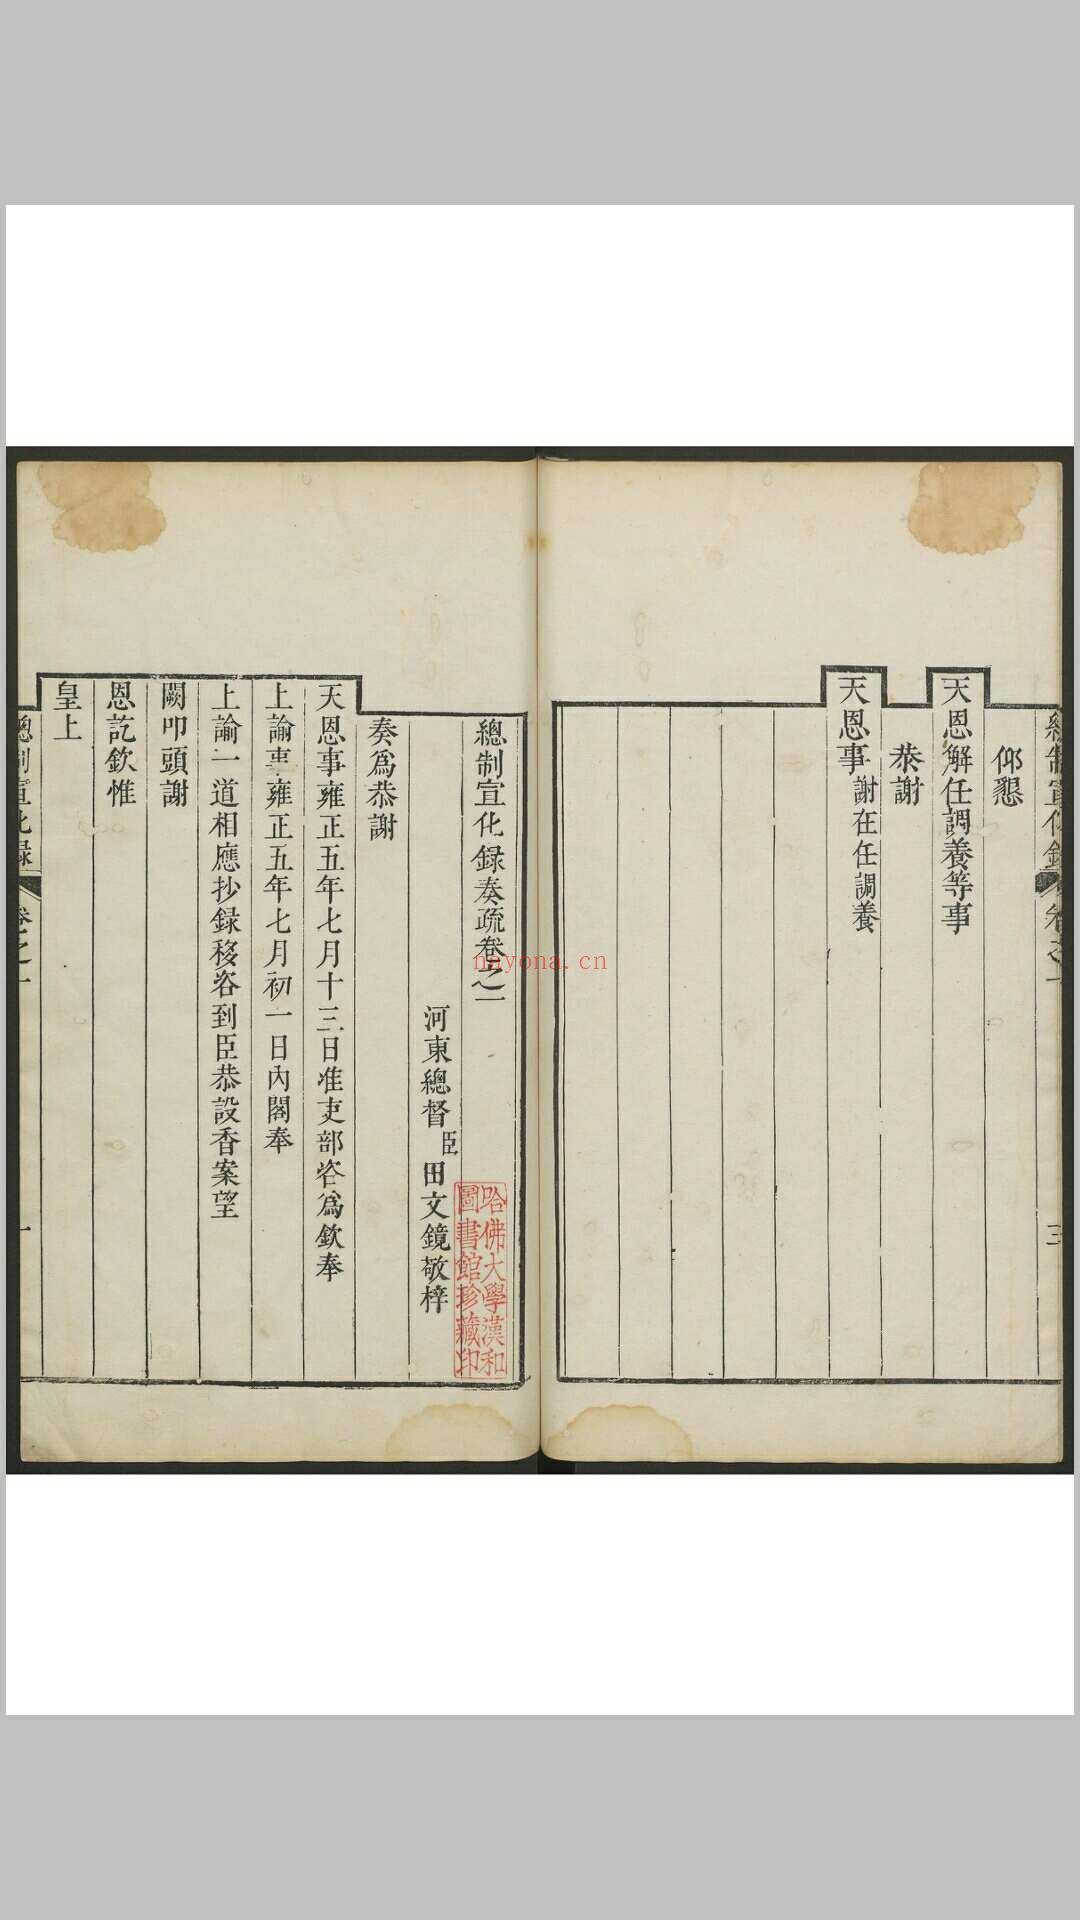 仰懇
天恩解任調養等事
恭謝
天恩事謝在任調養
三
總制宣化錄奏疏卷之一
河東總督臣田文鏡敬梓
奏爲恭謝
天恩事雍正五年七月十三日准吏部咨爲欽奉
上諭事雍正五年七月初一日內閣奉
上諭一道相應抄錄移咨到臣恭設香案望
闕叩頭謝
恩訖欽惟
皇上
總制宣化錄
卷之一
一
哈佛大學漢和
圖書館珍藏印
nayona.cn